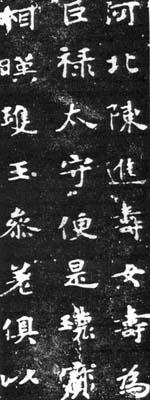 河北陳進壽女壽為
巨禄太守便是瓌寶
相暎瓊玉叅差俱以